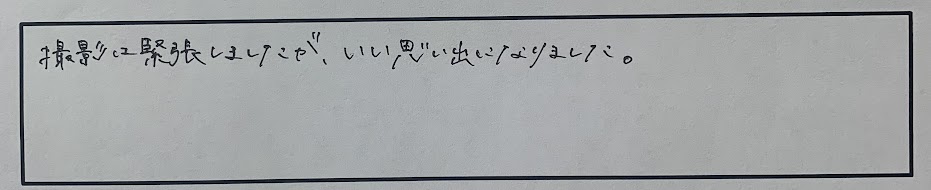 撮影は緊張しましたが、いい思い出になりました。